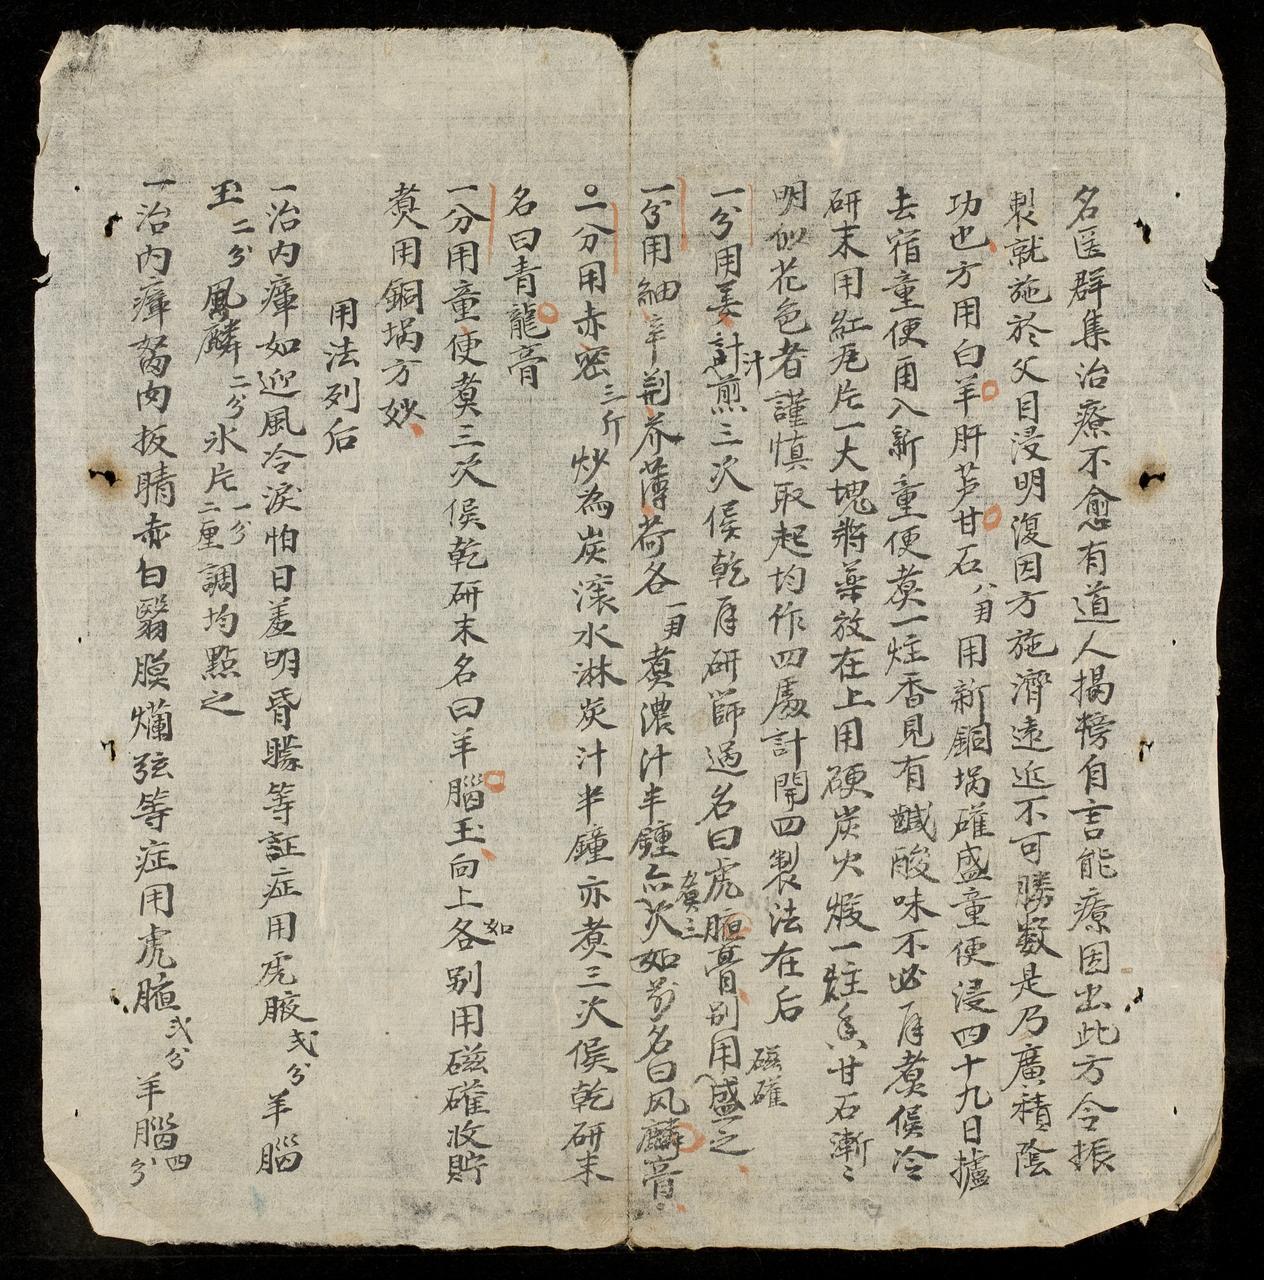 名医群集治療不愈有道人揭榜自言能療因出此方令振
製就施於父目浸明復因方施濟遠近不可勝数是乃廣積陰
功也方用白羊肝芦甘石八両用新銅埚確盛童便浸四十九日攄
去宿童便再入新童便煑一炷香見有鹹酸味不必再煑侯冷
研末用紅瓦片一大塊將藥放在上用硬炭火煅一炷香甘石漸〻
明似花色者謹慎取起均作四處計開四製法在后
一分用姜汁煎三次侯乾再研篩過名曰虎膸膏别用磁確盛之
一分用細辛荆芥薄荷各一両煑濃汁半鍾亦煑三次如前名曰风麟膏
一分用赤密三斤炒為炭滚水淋炭汁半鐘亦煑三次侯乾研末
名曰青龍膏
一分用童便煑三次侯乾研末名曰羊腦玉向上各如别用磁確收貯
煑用銅埚方妙
用法列后
一治内瘴如迎風冷淚怕日羞明昏矇等証症用虎液弍分羊腦
玉二分風麟二分氷片一分二厘調均點之
一治内瘴胬肉扳睛赤白翳膜爛弦等症用虎膸弍分羊腦四分